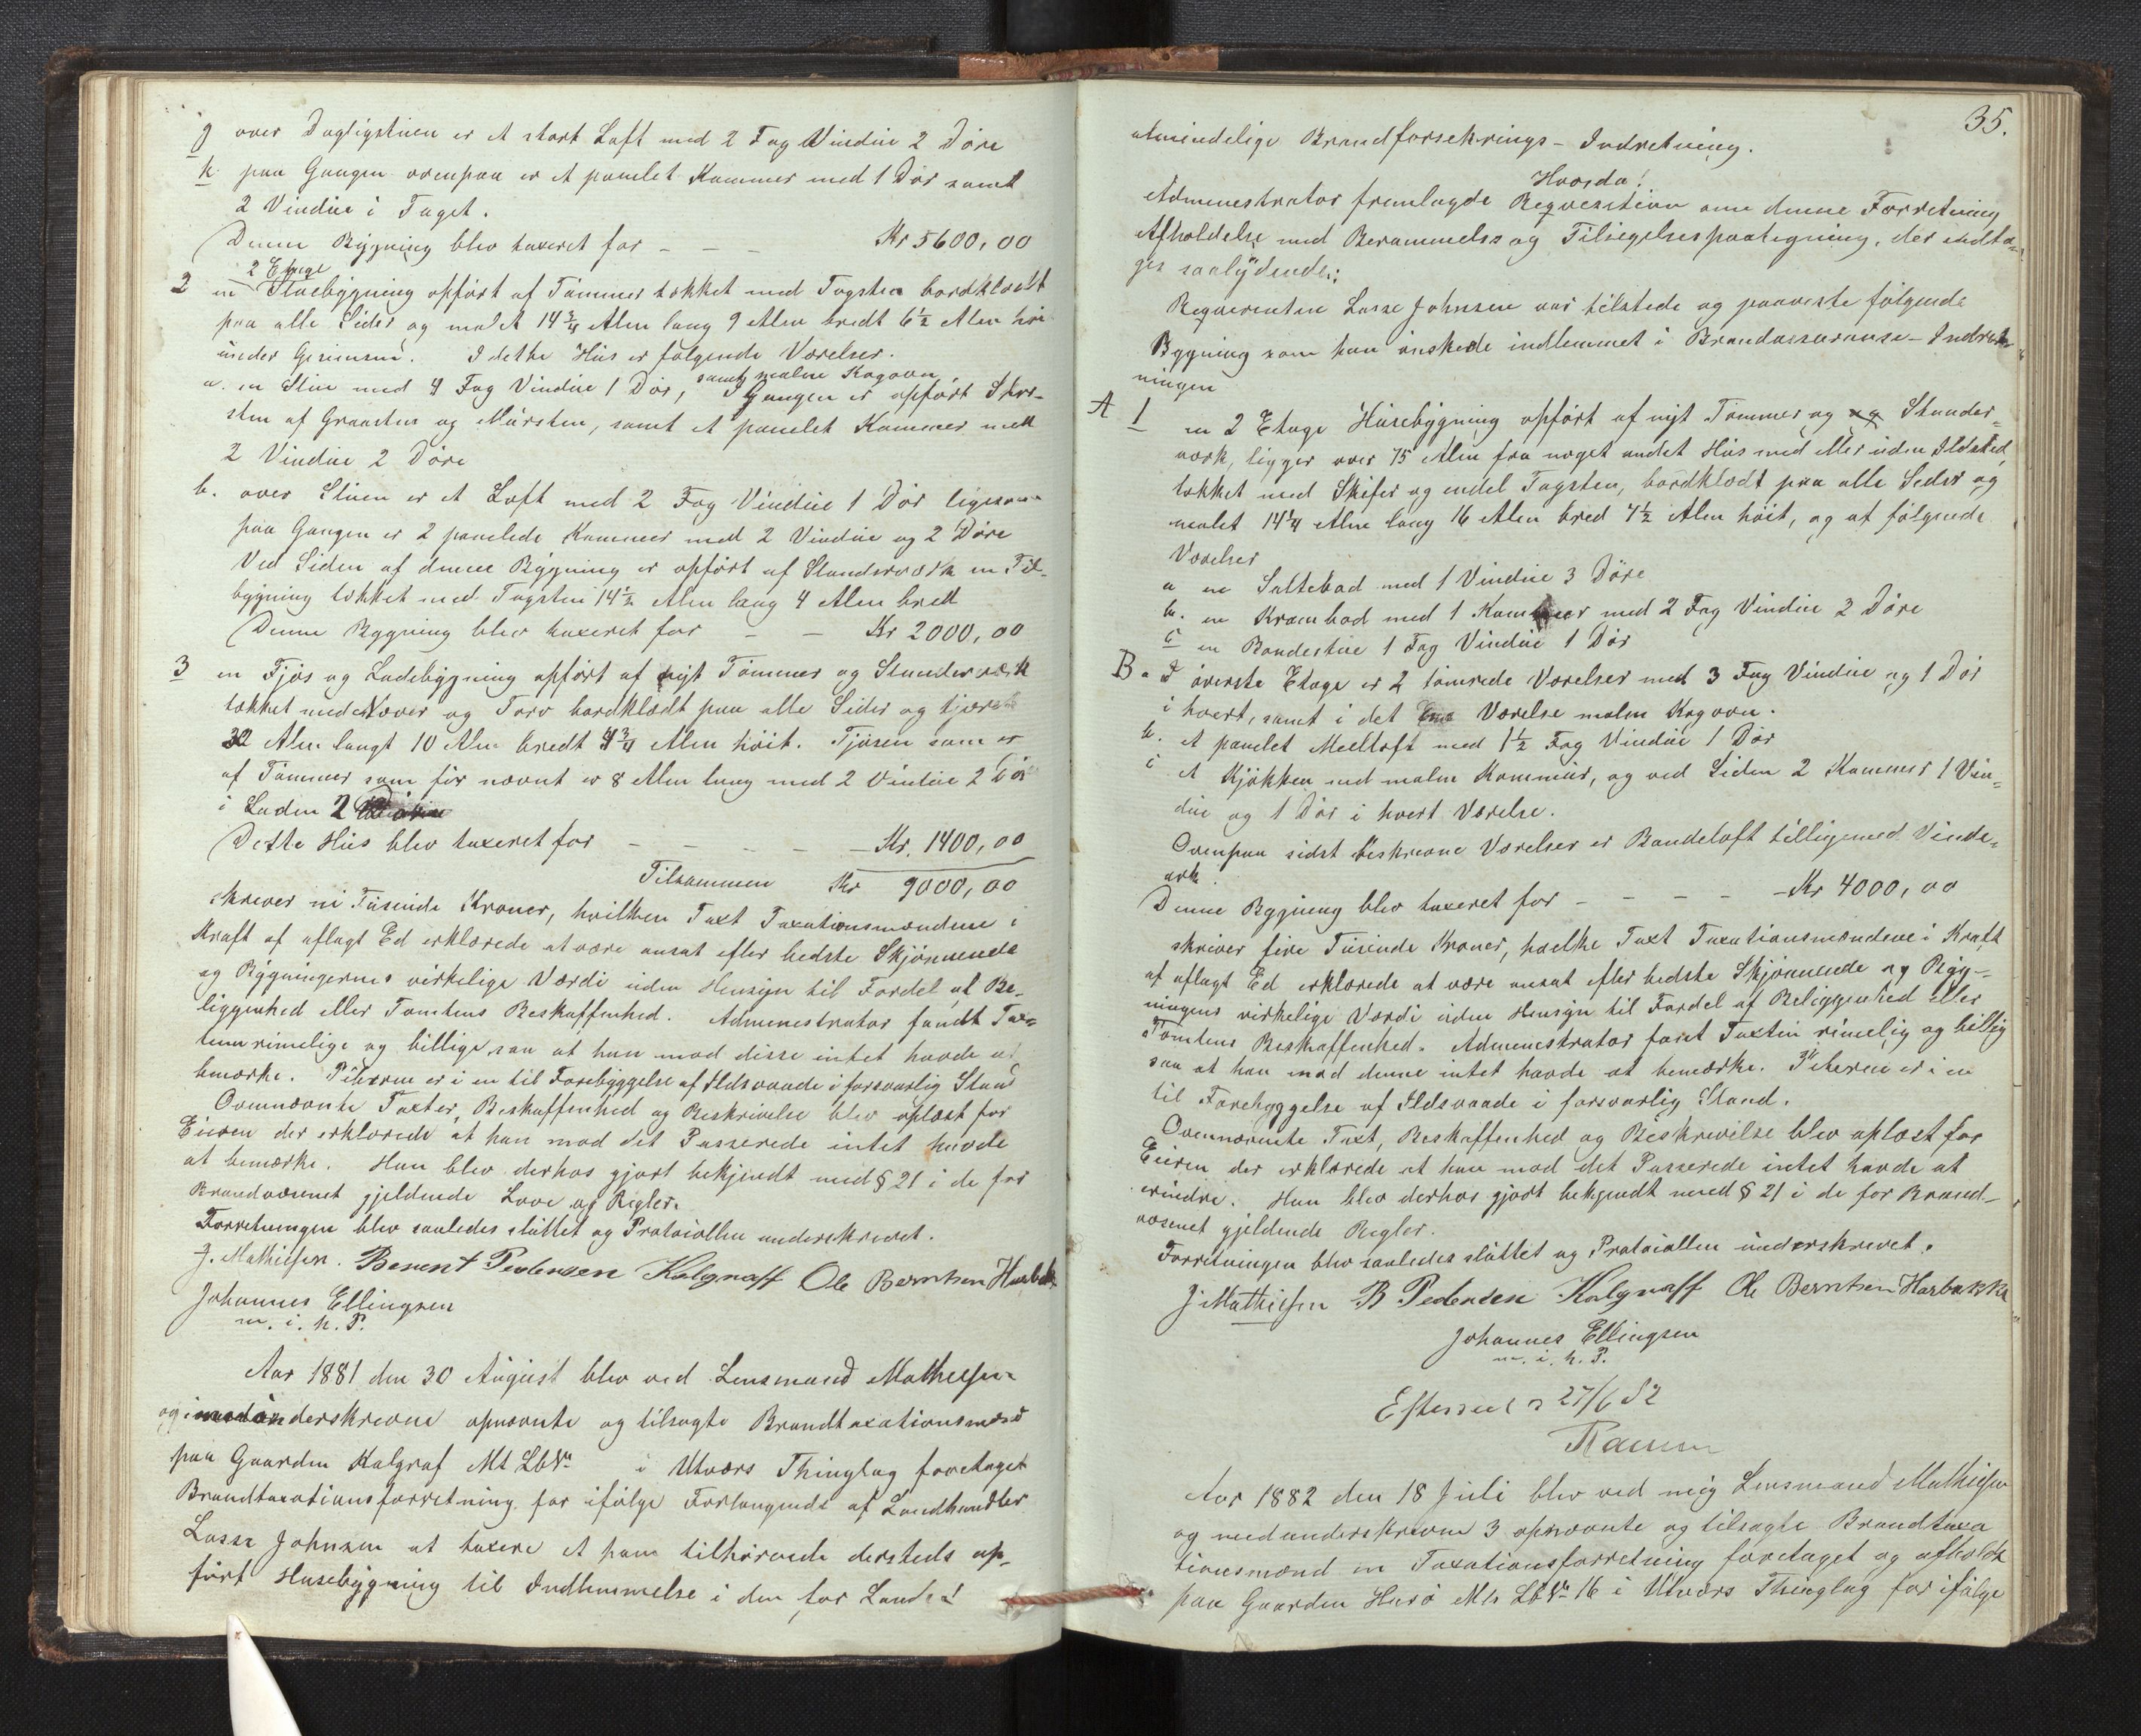 g over Dagligstuen er et stort Loft med 2 Fag Vindue 2 Döre
h paa Gangen ovenpaa er et panelet Kammer med 1 Dör samt
2 Vindue i Taget.
Denne Bygning blev taxeret for - - - Kr 5600,00
2 Etage
2 en Stuebygning opfört af Tömmer tækket med Tagsten bordklædt
paa alle Sider og malet 14 3/4 Alen lang 9 Alen bredt 6 1/2 Alen höi
under Gesimsen. I dette Hus er følgende Værelser.
a. en Stue med 4 Fag Vindue 1 Dör, samt malm Kogovn, I Gangen er opfört Skor-
sten af Graasten og Mursten, samt et panelet Kammer med
2 Vindue 2 Döre
b. over Stuen er et Loft med 2 Fag Vindue 1 Dör ligesom
paa Gangen er 2 panelede Kammer med 2 Vindue og 2 Döre
Ved Siden af denne Bygning er opfört af Standerværk en Til-
bygning tækket med Tagsten 14 1/2 Alen lang 4 Alen bred
Denne Bygning blev taxeret for - - Kr 2000,00
3 en Fjös og Ladebygning opfört af nyt Tömmer og Standerværk
tækket med Næver og Torv bordklædt paa alle Sider og tjæret
32 Alen langt 10 Alen bredt 4 3/4 Alen höit. Fjösen som er
af Tömmer som før nævnt er 8 Alen lang med 2 Vindue 2 Dör
i Laden 2
Dette Hus blev taxeret for - - - - - Kr. 1400,00
Tilsammen Kr 9000,00
skriver ni Tusinde Kroner, hvilken Taxt Taxationsmændene i
Kraft af aflagt Ed erklærede at være ansat efter bedste Skjönnende
og Bygningernes virkelige Værdi uden Hensyn til Fordel af Be-
liggenhed eller Tomtens Beskaffenhed. Admenestrator fandt Tax-
terne rimelige og billige, saa at han mod disse intet havde at
bemærke. Piberne er i en til Forebyggelse af Ildsvaade i forsvarlig Stand
Ovennævnte Taxter, Beskaffenhed og Beskrivelse blev oplæst for
Eieren der erklærede at han mod det Passerede intet havde
at bemærke. Han blev derhos gjort bekjendt med § 21 i de for
Brandvæsenet gjeldende Love og Regler.
Forretningen blev saaledes sluttet og Protocollen underskrevet.
J. Mathiesen. Berent Pedersen Kalgraff Ole Berntsen Harbak
Johannes Ellingsen
m. i. h. P.
Aar 1881 den 30 August blev ved Lensmand Mathiesen
og medunderskrevne opnævnte og tilsagte Brandtaxationsmænd
paa Gaarden Kalgraf Mt LbNr i Utværs Thinglag foretaget
Brandtaxationsforretning for ifölge Forlangende af Landhandler
Lasse Johnsen at taxere et ham tilhörende dersteds op-
fört Husebygning til Indlemmelse i den for Landet
35.
almindelige Brandforsekrings-Indretning.
Hvorda!
Admenestrator fremlagde Reqvesition om denne Forretning
Afholdelse med Berammelse og Tilsigelsespaategning, der indta-
ges saalydende:
Reqverenten Lasse Johnsen var tilstede og paaviste følgende
Bygning som han önskede indlemmet i Brandassuranse-Indret-
ningen
A 1 en 2 Etage Husebygning opfört af nyt Tömmer og Stander-
værk, ligger over 75 Alen fra noget andet Hus med eller uden Ildsted,
tækket med Skifer og endel Tagsten, bordklædt paa alle Sider og
malet 14 1/4 Alen lang 16 Alen bred 4 1/2 Alen höit, og af følgende
Værelser
a en Saltebod med 1 Vindue 3 Döre
b. en Krambod med 1 Kammer med 2 Fag Vindue 2 Döre
c en Bondestue 1 Fag Vindue 1 Dör
B a I överste Etage er 2 tömrede Værelser med 3 Fag Vindue og 1 Dör
i hvert, samt i det ene Værelse malm Kogovn.
b. et panelet Meelloft med 1 1/2 Fag Vindue 1 Dör
c et Kjökken med malm Kommür, og ved Siden 2 Kammer 1 Vin-
due og 1 Dör i hvert Værelse.
Ovenpaa sidst beskrevne Værelser er Bondeloft tilligemed Vinde-
ark.
Denne Bygning blev taxeret for - - - - Kr 4000,00
skriver fire Tusinde Kroner, hvilke Taxt Taxationsmændene i Kraft
af aflagt Ed erklærede at være ansat efter bedste Skjönnende og Byg-
ningens virkelige Værdi uden Hensyn til Fordel af Beliggenhed eller
Tomtens Beskaffenhed. Admenestrator fandt Taxten rimelig og billig
saa at han mod denne intet havde at bemærke. Piberne er i en
til Forebyggelse af Ildsvaade i forsvarlig Stand.
Ovennævnte Taxt, Beskaffenhed og Beskrivelse blev oplæst for
Eieren der erklærede at han mod det Passerede intet havde at
erindre. Han blev derhos gjort bekjendt med § 21 i de for Brand-
væsenet gjeldende Regler.
Forretningen blev saaledes sluttet og Protocollen underskrevet.
J Mathiesen B Pedersen Kalgraff Ole Berntsen Harbakke
Johannes Ellingsen
m. i. h. P.
Efterseet d 27/6 82
Aar 1882 den 18 Juli blev ved mig Lensmand Mathiesen
og medunderskrevne 3 opnævnte og tilsagte Brandtaxa
tionsmænd en Taxationsforretning foretaget og afholdt
paa Gaarden Husö Mts LbNr 16 i Utværs Thinglag for ifölge